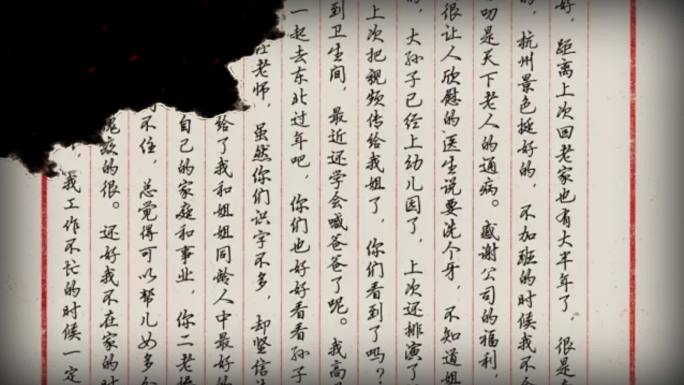 好，距离上次回老家也有大半年了，很是
的，杭州景色挺好的，不加班的时候我不会
叨是天下老人的通病。感谢公司的福利，
很让人欣慰的医生说要洗个牙，不知道姐
，大孙子已经上幼儿园了，上次还排演了
上次把视频传给我姐了，你们看到了吗？
到卫生间，最近还学会喊爸爸了呢。我高
一起去东北过年吧，你们也好好看看孙子
老师，虽然你们识字不多，却坚信
给了我和姐姐同龄人中最好的
自己的家庭和事业，你二老
不住，总觉得可以帮儿女多
疚的很。还好我不在家的时
，我工作不忙的时候一定